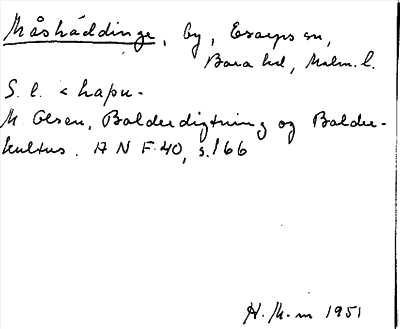 Måshäddinge, by, Esarps sn,
Bara hd, Malm. l.
S. l. < hapu-
M. Olsen, Balderdigtning og Balder-
kultus. ANF 40, s. 166
H. M-m 1951